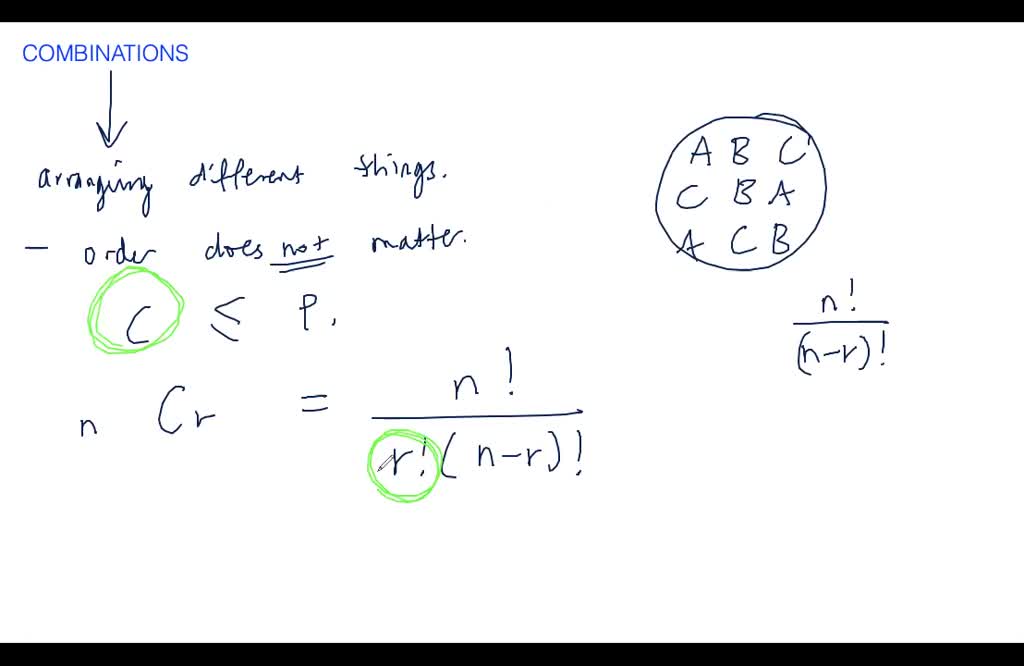 COMBINATIONS
arranging different things.
- order does not matter.
C ≤ P.
n C r = n! / r! (n-r)!
A B C
C B A
A C B
n! / (n-r)!